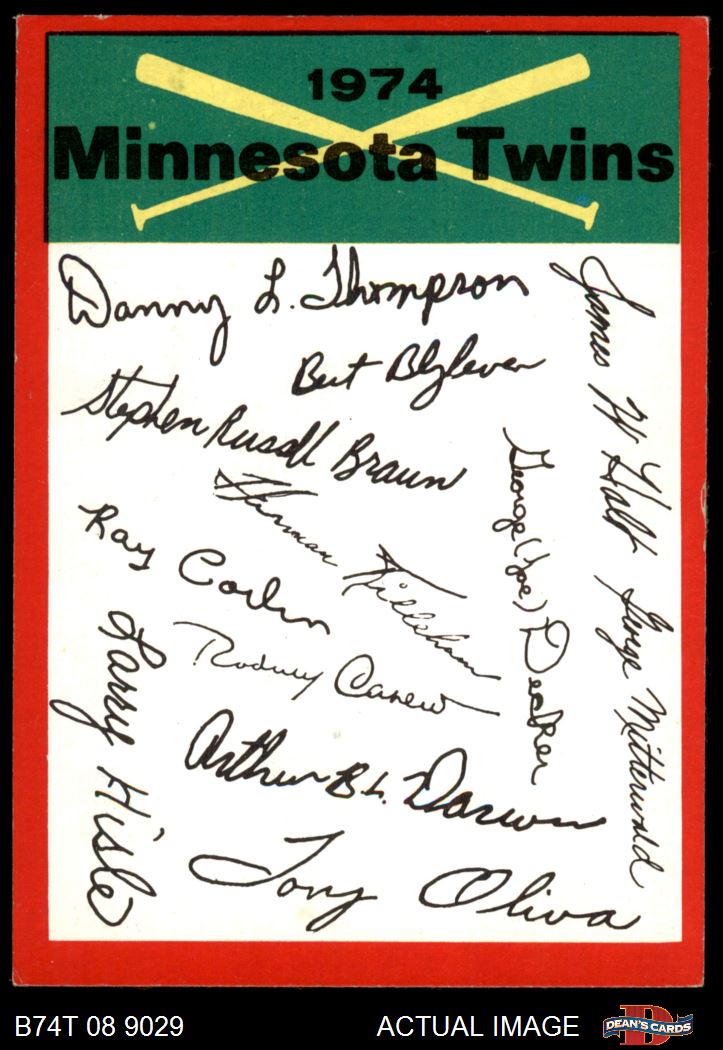 1974
Minnesota Twins
Danny L. Thompson
Bert Blyleven
Stephen Russell Braun
James W Holt
George Mitterwald
George (Joe) Decker
Harmon Killebrew
Ray Corbin
Rodney Carew
Larry Hisle
Arthur B L. Darwin
Tony Oliva
B74T 08 9029
ACTUAL IMAGE
D
DEAN'S CARDS